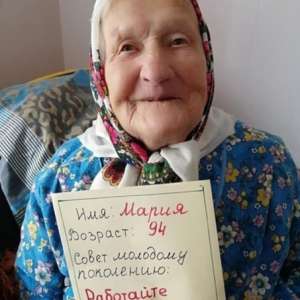 Имя: Мария
Возраст: 94
Совет молодому
поколению:
Работайте